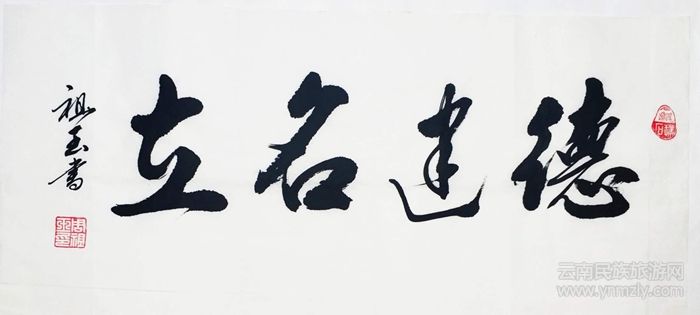 德建名立
祖玉書
云南民族旅游网
www.ynmzly.com